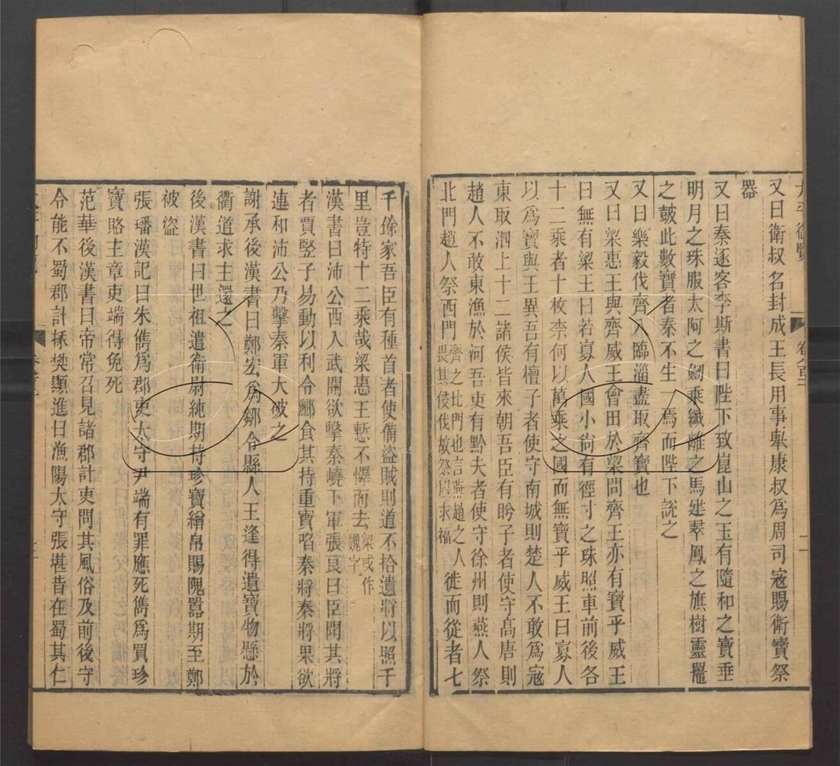 又曰衛叔名封成王長用事舉康叔爲周司寇賜衛寶祭
器
又曰秦逐客李斯書曰陛下致崑山之玉有隨和之寶垂
明月之珠服太阿之劒乘纖離之馬建翠鳳之旗樹靈鼉
之皷此數寶者秦不生一焉而陛下說之
又曰樂毅伐齊入臨淄盡取齊寶也
又曰梁惠王與齊威王會田於梁問齊王亦有寶乎威王
曰無有梁王曰若寡人國小尙有徑寸之珠照車前後各
十二乘者十枚柰何以萬乘之國而無寶乎威王曰寡人
以爲寶與王異吾有檀子者使守南城則楚人不敢爲寇
東取泗上十二諸侯皆來朝吾臣有盻子者使守髙唐則
趙人不敢東漁於河吾吏有黔夫者使守徐州則燕人祭
北門趙人祭西門齊之北門也言燕趙之人畏其侵伐故祭以求福徙而從者七
千餘家吾臣有種首者使備盜賊則道不拾遺將以照千
里豈特十二乘哉梁惠王慙不懌而去梁或作魏字
漢書曰沛公西入武關欲擊秦嶢下軍張良曰臣聞其將
者賈竪子易動以利令酈食其持重寶啗秦將秦將果欲
連和沛公乃擊秦軍大破之
謝承後漢書曰鄭宏爲鄒令縣人王逢得遺寶物懸於
衢道求主還之
後漢書曰世祖遣衛尉銚期持珍寶繒帛賜隗囂期至鄭
被盜
張璠漢記曰朱儁爲郡吏太守尹端有罪應死儁爲買珍
寶賂主章吏端得免死
范華後漢書曰帝常召見諸郡計吏問其風俗及前後守
令能不蜀郡計掾樊顯進曰漁陽太守張堪昔在蜀其仁